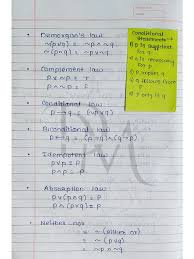 • Demorgan's law
~(p∨q) = ~p ∧ ~q
~(p∧q) = ~p ∨ ~q
• Complement law
p ∨ ~p = T
p ∧ ~p = F
• Conditional law
p → q = (~p∨q)
• Biconditional law
p ↔ q = (p→q) ∧ (q→p)
• Idempotent law
p ∨ p = p
p ∧ p = P
• Absorption law
p ∨ (p∧q) = P
p ∧ (p∨q) = P
• Neither
= ~(Either or)
= ~(p∨q)
Conditional
Statements →
p is sufficient
for q
q is necessary
for p
p implies q
q follows from
P
p only if q